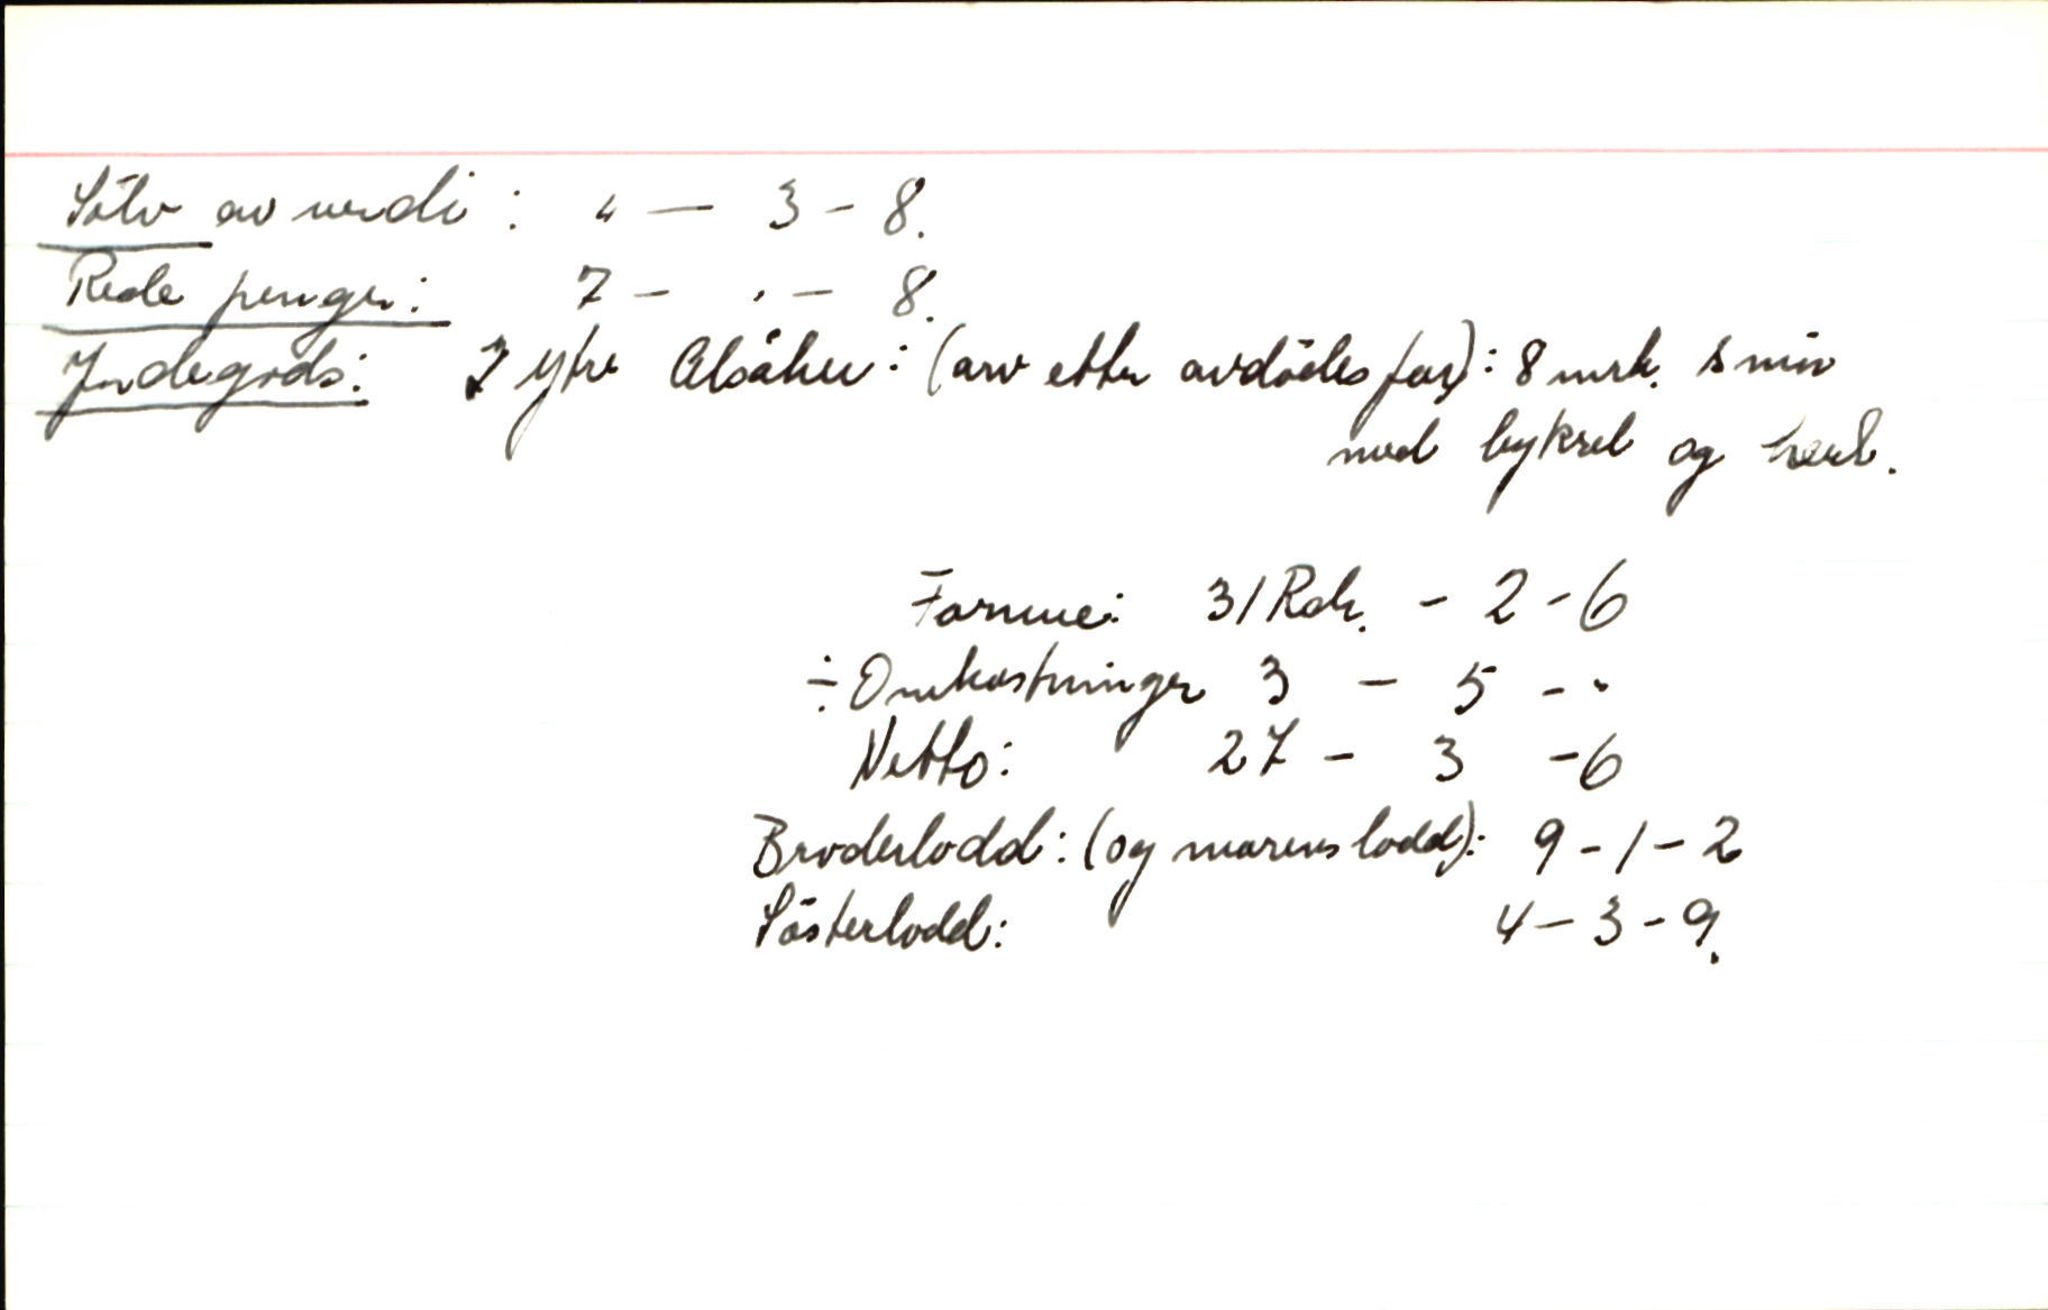 Sölv av verdi: " — 3 - 8.
Rede penger: 7 - " - 8.
Jordegods: I ytre Alsåker: (arv etter avdödes far): 8 mrk. smör
med byksel og herl.
Formue: 31 Rdr. - 2 - 6
÷ Omkostninger 3 - 5 - "
Netto: 27 - 3 - 6
Broderlodd: (og morens lodd): 9 - 1 - 2
Sösterlodd: 4 - 3 - 9.